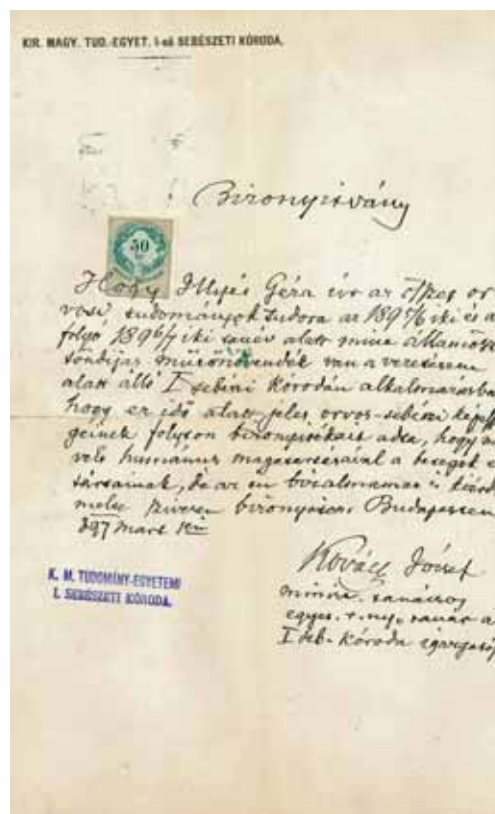 KIR. MAGY. TUD.-EGYET. I-ső SEBÉSZETI KÓRODA.
Bizonyitvány
50
Hogy Illyés Géza úr az össszes or
vosi tudományok tudora az 1895/6 iki és a
folyó 1896/7 iki tanév alatt mint állam
ösdijas műtőnövendék van a vezetésem
alatt álló I sebészi kórodán alkalmazásba
hogy ez idő alatt jeles orvos-sebészi
geinek folyton bizonyitékait adta, hogy
humánus magatartásával a betegek
társainak, de az én bizalmamat is
szivesen bizonyitom Budapesten
897 Mart
K. M. TUDOMÁNY-EGYETEMI
I. SEBÉSZETI KÓRODA.
Kovács József
tanácsos
egyet. r. ny. tanár a
I seb. kóroda igazgatój